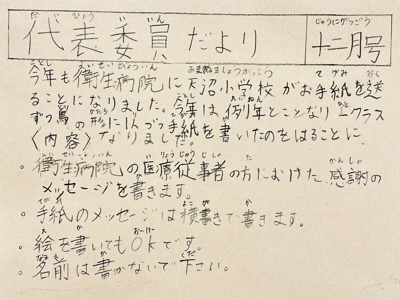 代表委員だより 十二月号
だいひょういいん じゅうにがつごう
今年も衛生病院に天沼小学校がお手紙を送
ることになりました。今年は例年とことなり一クラス
ずつ鳥の形に1人づつ手紙を書いたのをはることに
〈内容〉なりました。
・衛生病院の医療従事者の方にむけた感謝の
メッセージを書きます。
・手紙のメッセージは横書きで書きます。
・絵を書いてもOKです。
・名前は書かないで下さい。